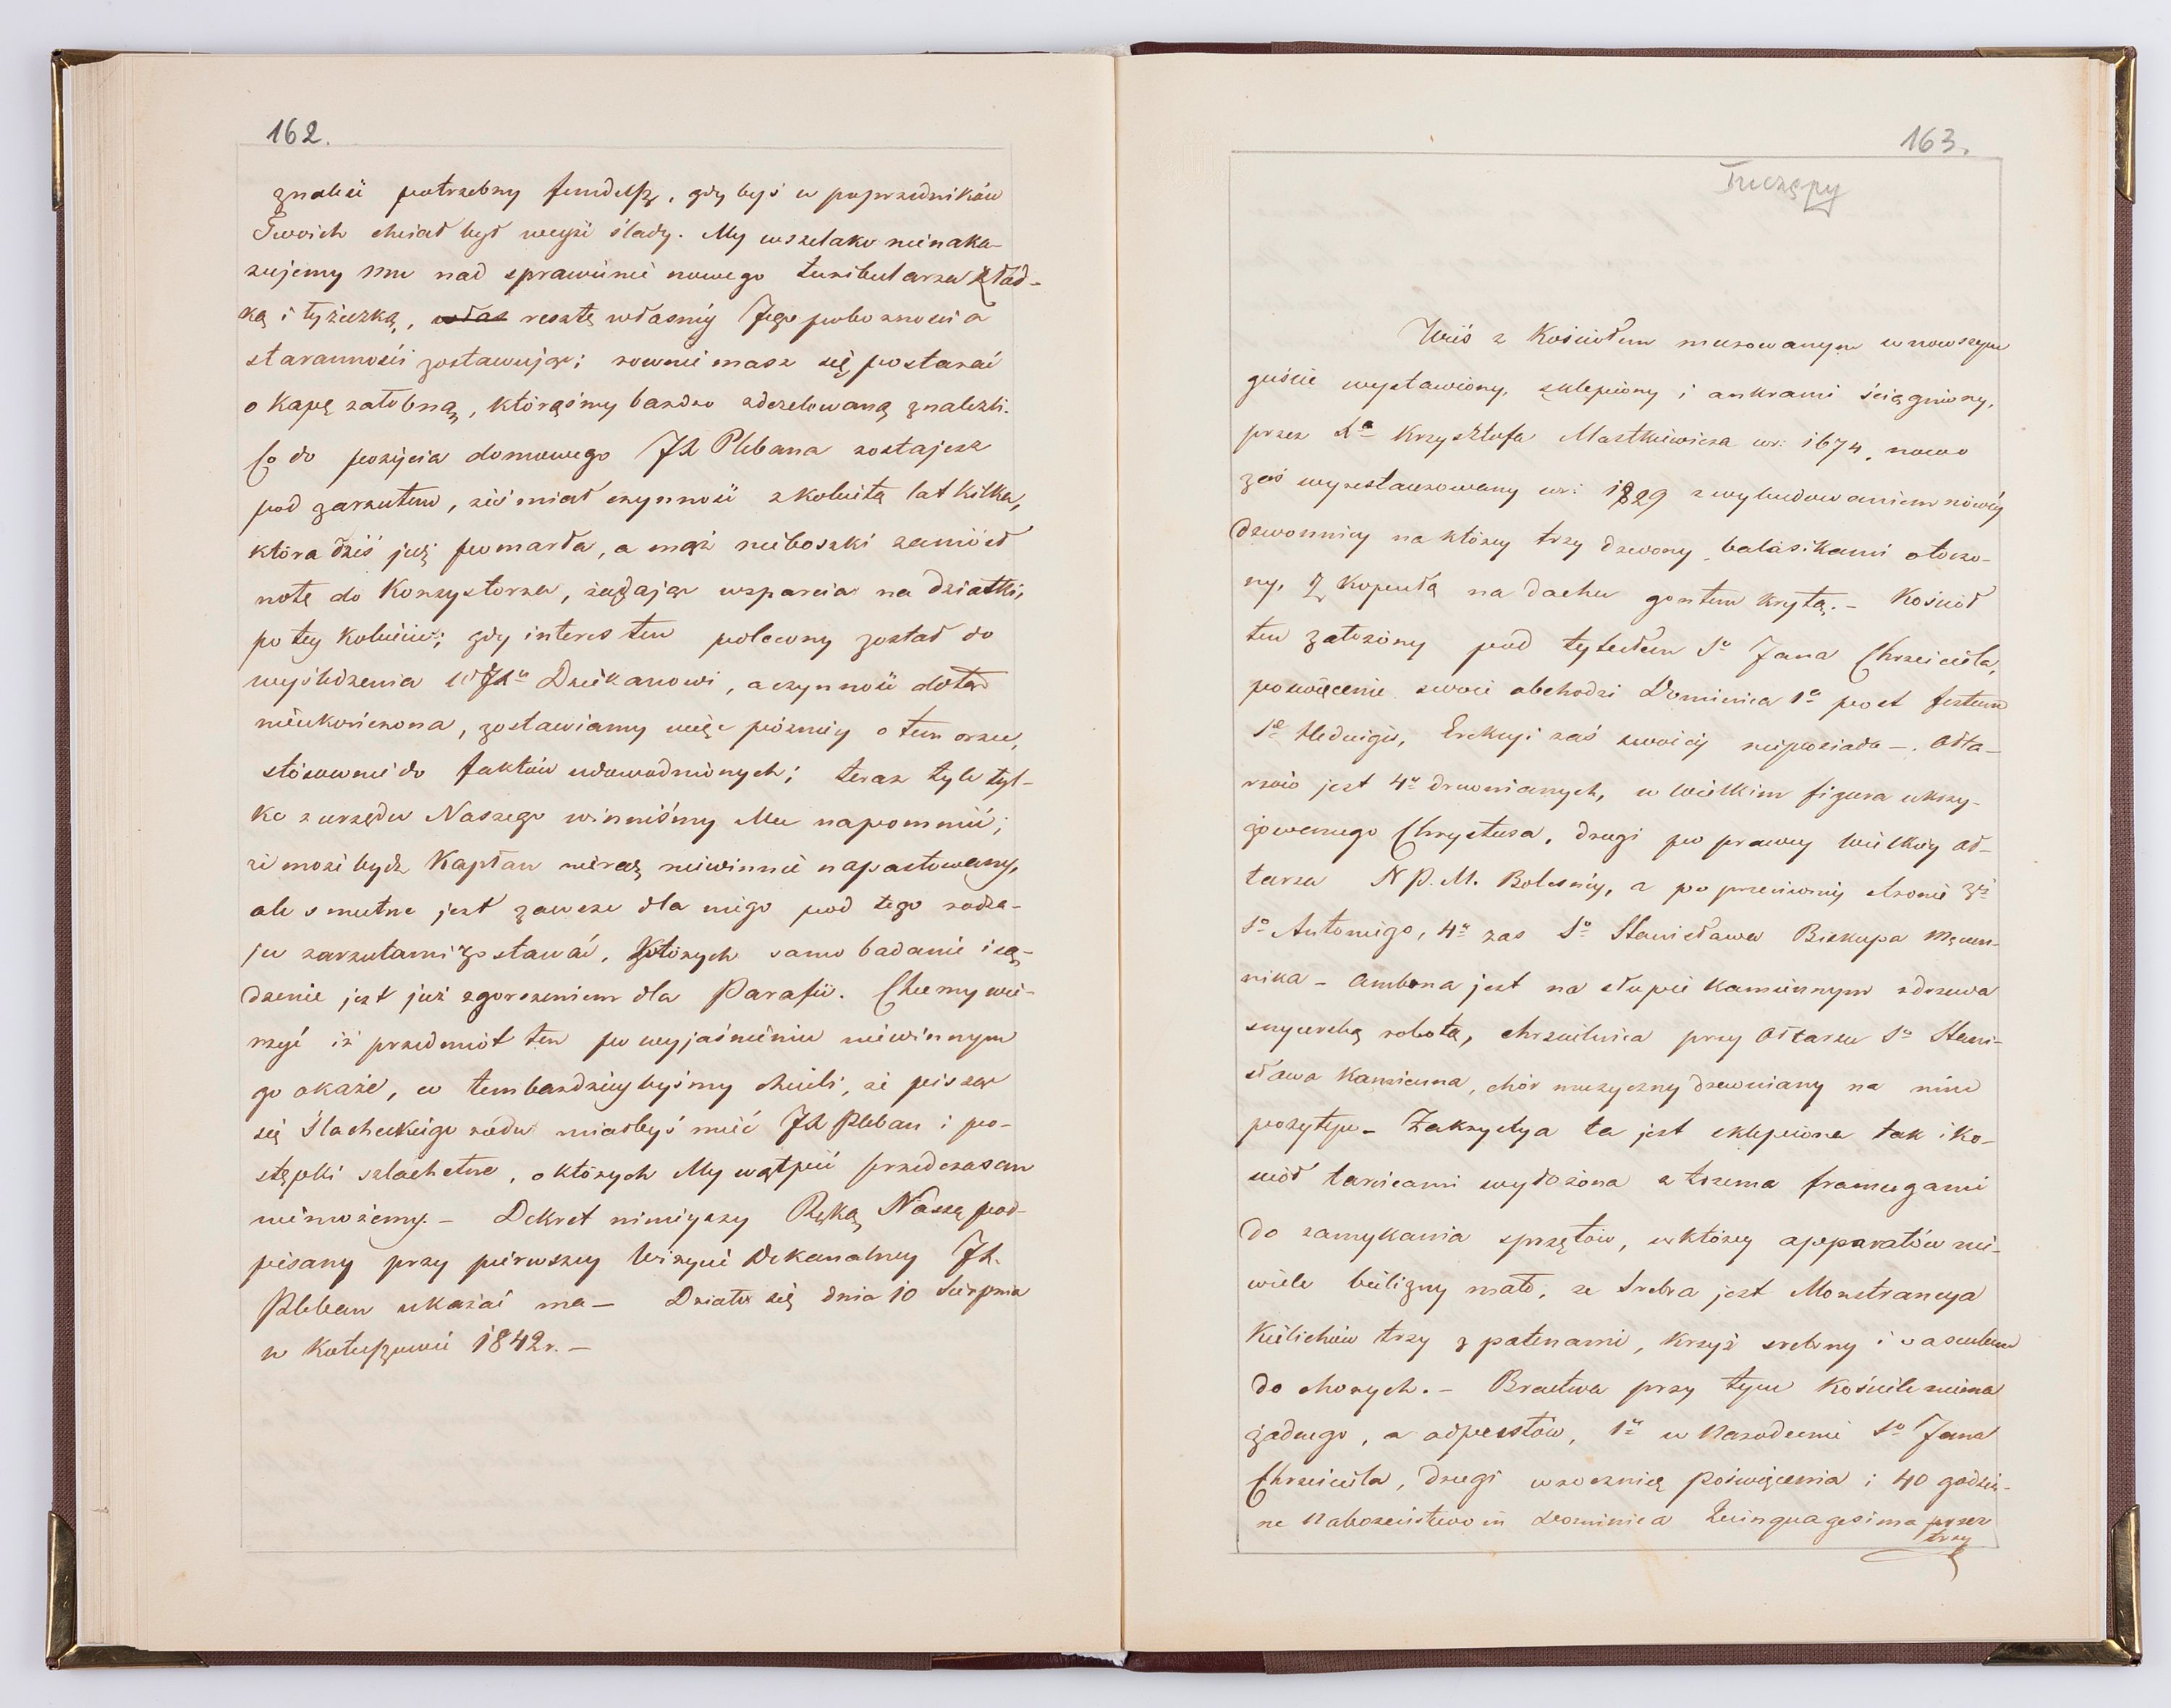 162.
znaleść potrzebny fundusz, gdybyś w poprzedników
Swoich chciał był wejść ślady. My wszelako nienaka-
zujemy mu nad sprawienie nowego turibularza z łód-
ką i łyżeczką, resztę własnéy Jego pobożności a
staranności zostawując; rownie masz się postarać
o kapę żałobną, którąśmy bardzo zdezelowaną znaleźli.
Co do pożycia domowego JX Plebana zostajesz
pod zarzutem, żeś miał czynność z kobietą lat kilka,
która dziś już pomarła, a mąż nieboszki zaniósł
notę do Konsystorza, żądając wsparcia na dziatki,
po tey kobiecie; gdy interes ten polecony został do
wyśledzenia WJXu Dziekanowi, a czynność dotąd
nieukończona, zostawiamy więc późniéy o tem orzec,
stósownie do faktów udowodnionych; teraz tyle tyl-
ko z urzędu Naszego winniśmy Mu napomnieć;
że może bydź Kapłan nieraz niewinnie napastowany,
ale smutne jest zawsze dla niego pod tego rodza-
ju zarzutami zostawać, których samo badanie i są-
dzenie jest już zgorszeniem dla Parafii. Chcemy wie-
rzyć iż przedmiot ten po wyjaśnieniu niewinnym
go okaże, co tembardziey byśmy chcieli, że pisząc
się Slacheckiego rodu miałbyś mieć JX Pleban i po-
stępki szlachetne, o których My wątpić przedczasem
niemożemy. - Dekret niniejszy Ręką Naszą pod-
pisany przy pierwszey Wizycie Dekanalney JX.
Pleban ukazać ma - Działo się dnia 10 Sierpnia
w Kotuszowie 1842 r. -
163.
Tuczępy
Wieś z Kosciołem murowanym w nowszym
guście wystawiony, sklepiony i ankrami ściągniony,
przez Xa Krzysztofa Mastkiewicza w r: 1674, nowo
zaś wyrestaurowany w r: 1829 z wybudowaniem nówéy
dzwonnicy na którey trzy dzwony balasikami otoczo-
ny, z kopułą na dachu gontem krytą. - Kościoł
ten założony pod tytułem So Jana Chrzciciela,
poswięcenie swoie obchodzi Dominica 1a post festum
Sae Hedwigis, Erekcyi zaś swoiéy nieposiada -. Ołta-
rzów jest 4y drewnianych, w Wielkim figura ukrzy-
żowanego Chrystusa, drugi po prawey Wielkiego oł-
tarza N P. M. Bolesnéy, a po przeciwnéy stronie 3ci
So Antoniego, 4y zas So Stanisława Biskupa Męczen-
nika - Ambona jest na słupie kamiennym z drzewa
snycerską robotą, chrzcielnica przy Ołtarzu So Stani-
sława Kamienna, chór muzyczny drewniany na nim
pozytyw - Zakrystya ta jest sklepiona tak i ko-
ściół tarcicami wyłożona z trzema framugami
do zamykania sprzętów, w którey apparatów nie-
wiele bielizny mało, ze Srebra jest Monstrancya
Kielichów trzy z patenami, krzyż srebrny i vasculum
do chorych. - Bractwa przy tym Kościele niema
żadnego, a odpustów, 1y w Narodzenie So Jana
Chrzciciela, drugi w rocznicę Poświęcenia i 40 godzin-
ne Nabożeństwo in Dominica Quinquagesima przez
trzy